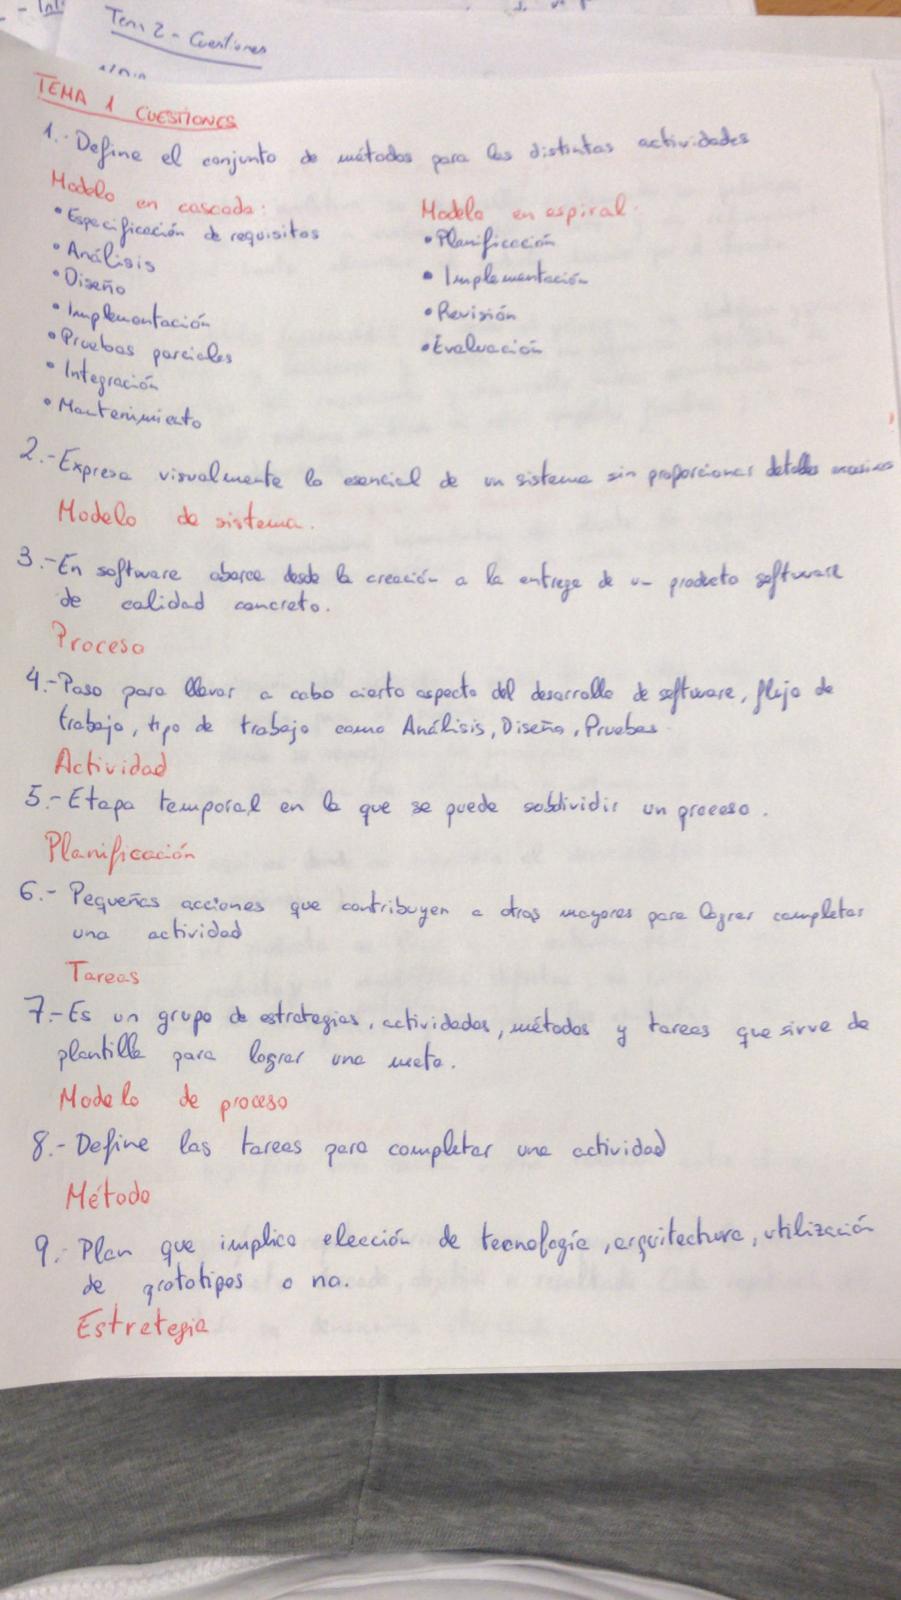 Tema 2 - Cuestiones
TEMA 1 CUESTIONES
1.- Define el conjunto de métodos para las distintas actividades
Modelo en cascada:
• Especificación de requisitos
• Análisis
• Diseño
• Implementación
• Pruebas parciales
• Integración
• Mantenimiento
Modelo en espiral.
• Planificación
• Implementación
• Revisión
• Evaluación
2.- Expresa visualmente lo esencial de un sistema sin proporcionar detalles
Modelo de sistema.
3.- En software abarca desde la creación a la entrega de un producto software
de calidad concreto.
Proceso
4.- Paso para llevar a cabo cierto aspecto del desarrollo de software, flujo de
trabajo, tipo de trabajo como Análisis, Diseño, Pruebas.
Actividad
5.- Etapa temporal en la que se puede subdividir un proceso.
Planificación
6.- Pequeñas acciones que contribuyen a otras mayores para lograr completar
una actividad
Tareas
7.- Es un grupo de estrategias, actividades, métodos y tareas que sirve de
plantilla para lograr una meta.
Modelo de proceso
8.- Define las tareas para completar una actividad
Método
9.- Plan que implica elección de tecnología, arquitectura, utilización
de prototipos o no.
Estrategia